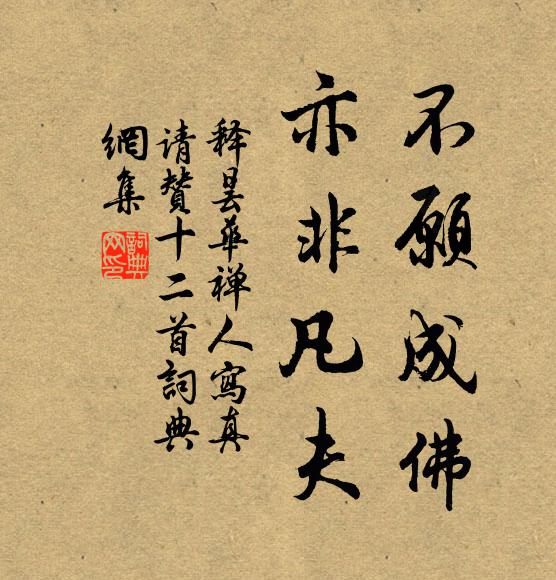 不願成佛
亦非凡夫
释昙华禅人寫真
请赞十二首詞典
網集
詞典网印